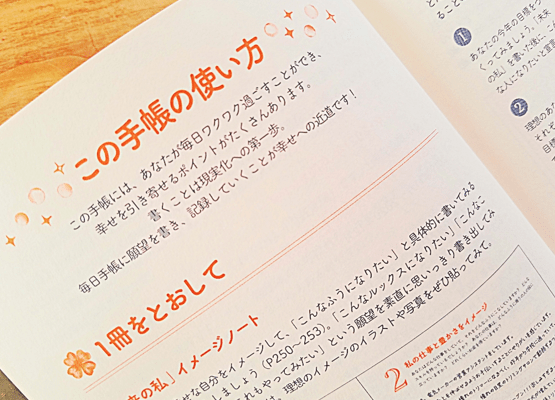 この手帳の使い方
この手帳には、あなたが毎日ワクワク過ごすことができ、
幸せを引き寄せるポイントがたくさんあります。
書くことは現実化への第一歩。
毎日手帳に願望を書き、記録していくことが幸せへの近道です！
1冊をとおして
の私」イメージノート
せな自分をイメージして、「こんなふうになりたい」と具体的に書いてみる
しましょう（P250〜253）。「こんなルックスになりたい」「こんなこ
れもやってみたい」という願望を素直に思いっきり書き出してみ
、理想のイメージのイラストや写真をぜひ貼ってみて。
2 私の仕事と豊かさをイメージ
ること
1
あなたの今年の目標をつ
くってみましょう。「未来
の私」を書いた後に、こん
な人になりたいと言
2
理想のあ
それぞ
目標